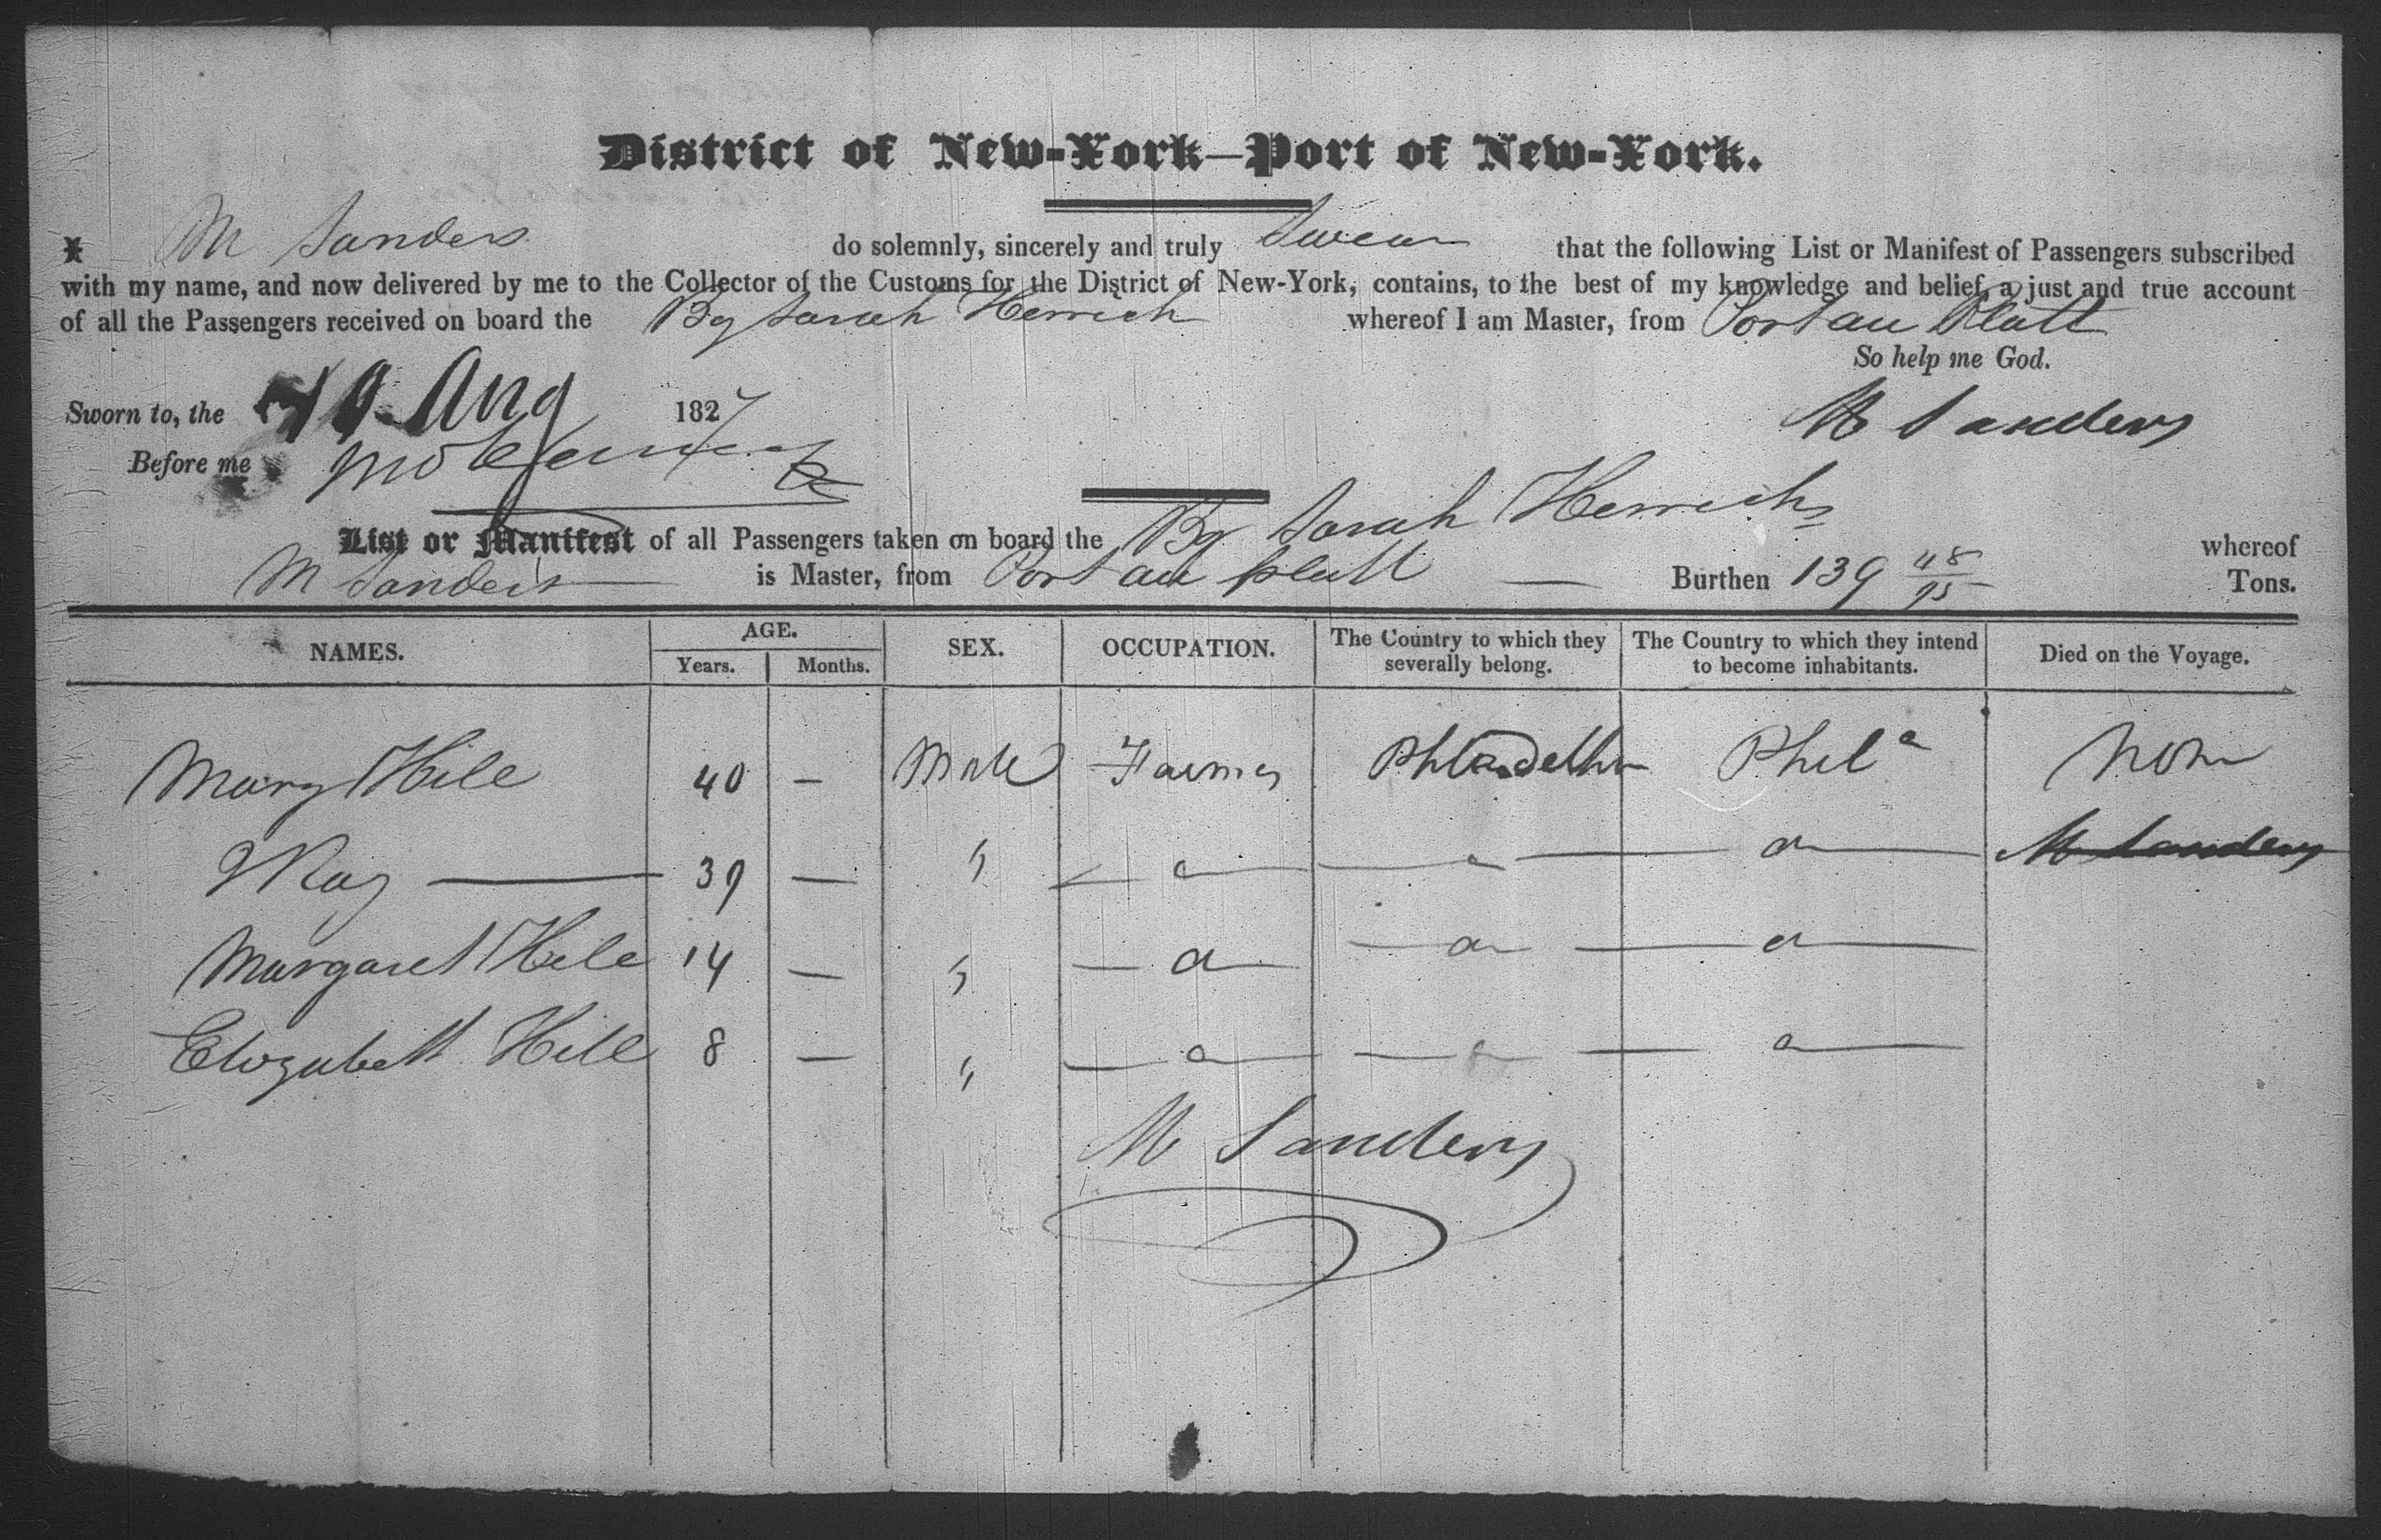 District of New-York—Port of New-York.
I M Sanders do solemnly, sincerely and truly Swear that the following List or Manifest of Passengers subscribed
with my name, and now delivered by me to the Collector of the Customs for the District of New-York, contains, to the best of my knowledge and belief, a just and true account
of all the Passengers received on board the Bg Sarah Herrick whereof I am Master, from Port au Platt
So help me God.
Sworn to, the Aug 1827
M Sanders
Before me
List or Manifest of all Passengers taken on board the Bg Sarah Herrick whereof
M Sanders is Master, from Port au platt Burthen 139 48/95 Tons.
NAMES. AGE. SEX. OCCUPATION. The Country to which they severally belong. The Country to which they intend to become inhabitants. Died on the Voyage.
Years. Months.
Mary Hill 40 — Male Farmer Phil a
— 39 — "
M Sanders
Margaret Hill 14 — "
Elizabeth Hill 8 — "
M Sanders